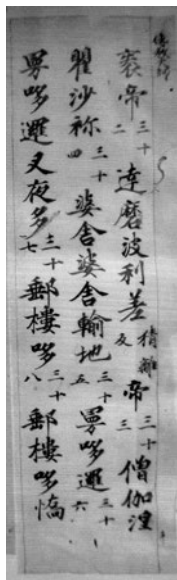 袠帝三十二達磨波利差猜離反帝三十三僧伽涅
瞿沙祢三十四婆舍婆舍輸地三十五曼哆邏三十六
曼哆邏叉夜多三十七郵樓哆三十八郵樓哆憍